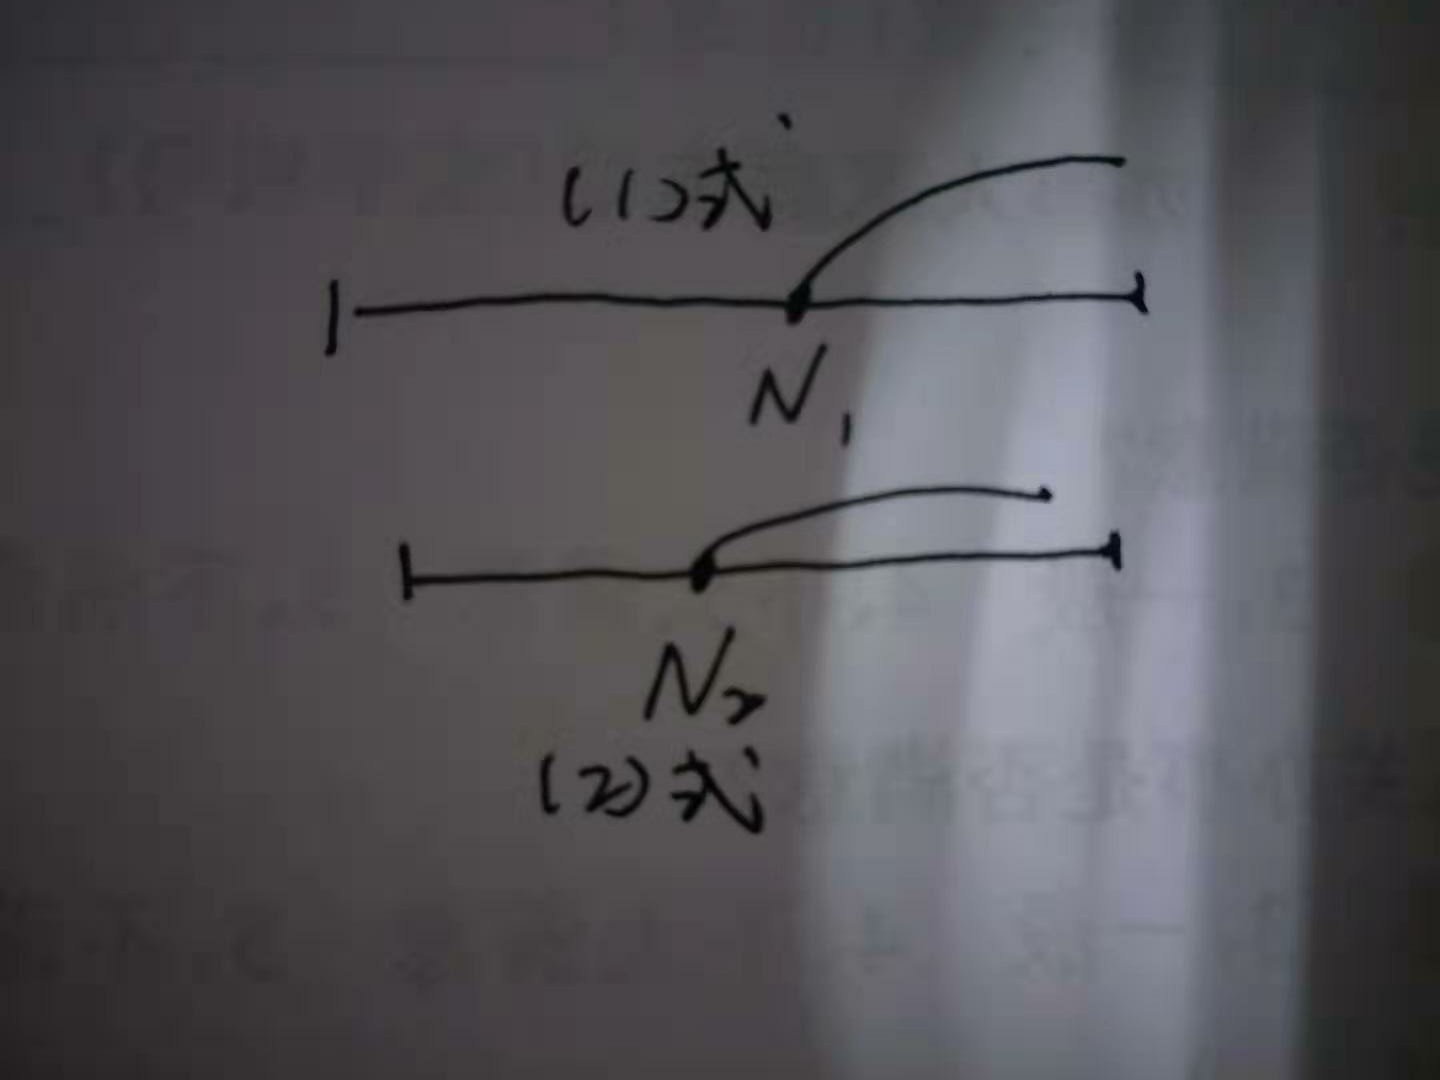 (1)式
N₁
N₂
(2)式